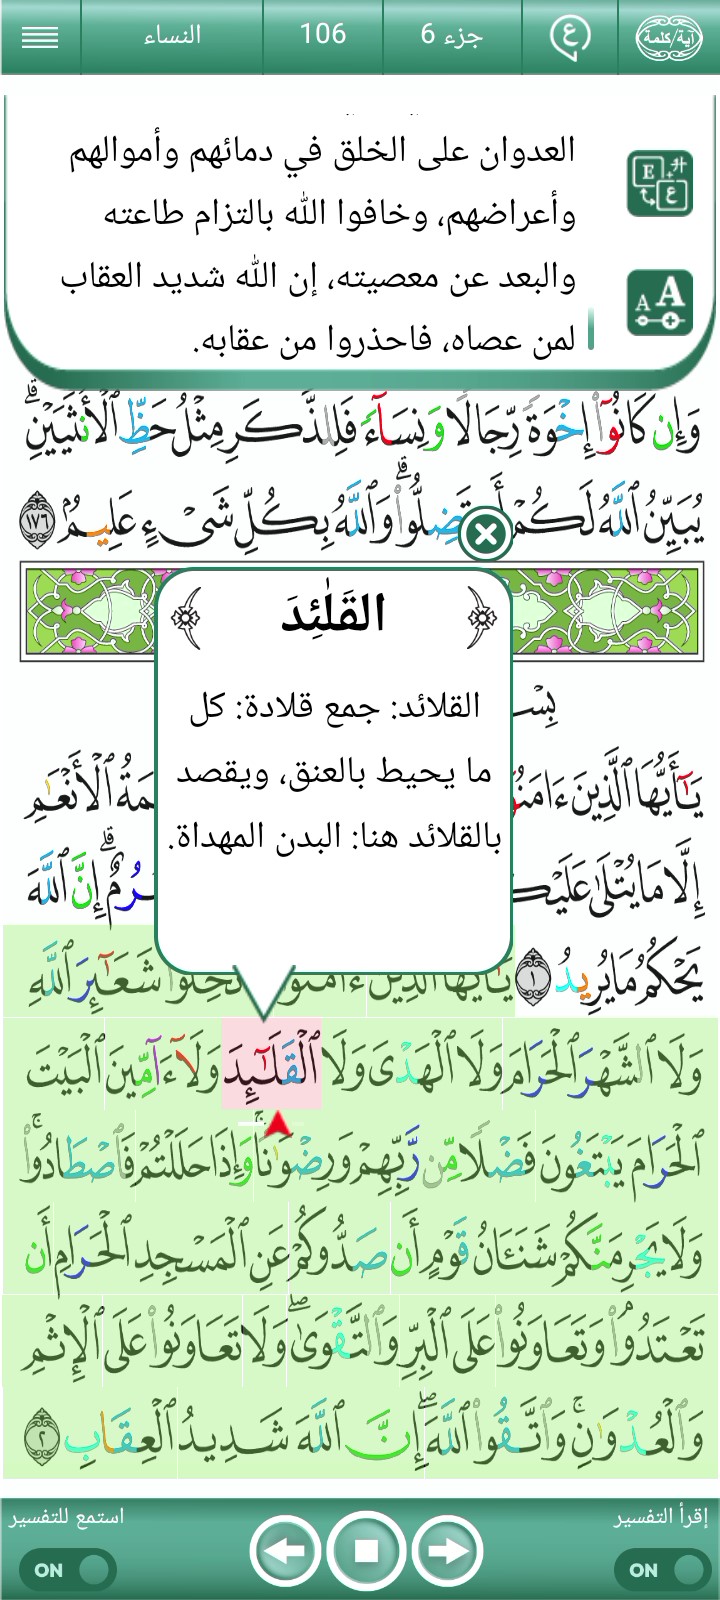 النساء 106 جزء 6 ع آية/كلمة
العدوان على الخلق في دمائهم وأموالهم
وأعراضهم، وخافوا الله بالتزام طاعته
والبعد عن معصيته، إن الله شديد العقاب
لمن عصاه، فاحذروا من عقابه.
وَإِن كَانُوٓا۟ إِخْوَةً رِّجَالًا وَنِسَآءً فَلِلذَّكَرِ مِثْلُ حَظِّ ٱلْأُنثَيَيْنِ ۗ
يُبَيِّنُ ٱللَّهُ لَكُمْ أَن تَضِلُّوا۟ ۗ وَٱللَّهُ بِكُلِّ شَىْءٍ عَلِيمٌۢ ١٧٦
القَلَٰئِدَ
القلائد: جمع قلادة: كل
ما يحيط بالعنق، ويقصد
بالقلائد هنا: البدن المهداة.
بِسْ
يَٰٓأَيُّهَا ٱلَّذِينَ ءَامَنُ مَةُ ٱلْأَنْعَٰمِ
إِلَّا مَا يُتْلَىٰ عَلَيْكُ رُمٌ ۗ إِنَّ ٱللَّهَ
يَحْكُمُ مَا يُرِيدُ ١ يَٰٓأَيُّهَا ٱلَّذِينَ ءَامَنُوا۟ تُحِلُّوا۟ شَعَٰٓئِرَ ٱللَّهِ
وَلَا ٱلشَّهْرَ ٱلْحَرَامَ وَلَا ٱلْهَدْىَ وَلَا ٱلْقَلَٰٓئِدَ وَلَآ ءَآمِّينَ ٱلْبَيْتَ
ٱلْحَرَامَ يَبْتَغُونَ فَضْلًا مِّن رَّبِّهِمْ وَرِضْوَٰنًا ۚ وَإِذَا حَلَلْتُمْ فَٱصْطَادُوا۟ ۚ
وَلَا يَجْرِمَنَّكُمْ شَنَـَٔانُ قَوْمٍ أَن صَدُّوكُمْ عَنِ ٱلْمَسْجِدِ ٱلْحَرَامِ أَن
تَعْتَدُوا۟ ۘ وَتَعَاوَنُوا۟ عَلَى ٱلْبِرِّ وَٱلتَّقْوَىٰ ۖ وَلَا تَعَاوَنُوا۟ عَلَى ٱلْإِثْمِ
وَٱلْعُدْوَٰنِ ۚ وَٱتَّقُوا۟ ٱللَّهَ ۖ إِنَّ ٱللَّهَ شَدِيدُ ٱلْعِقَابِ ٢
إقرأ التفسير استمع للتفسير
ON ON